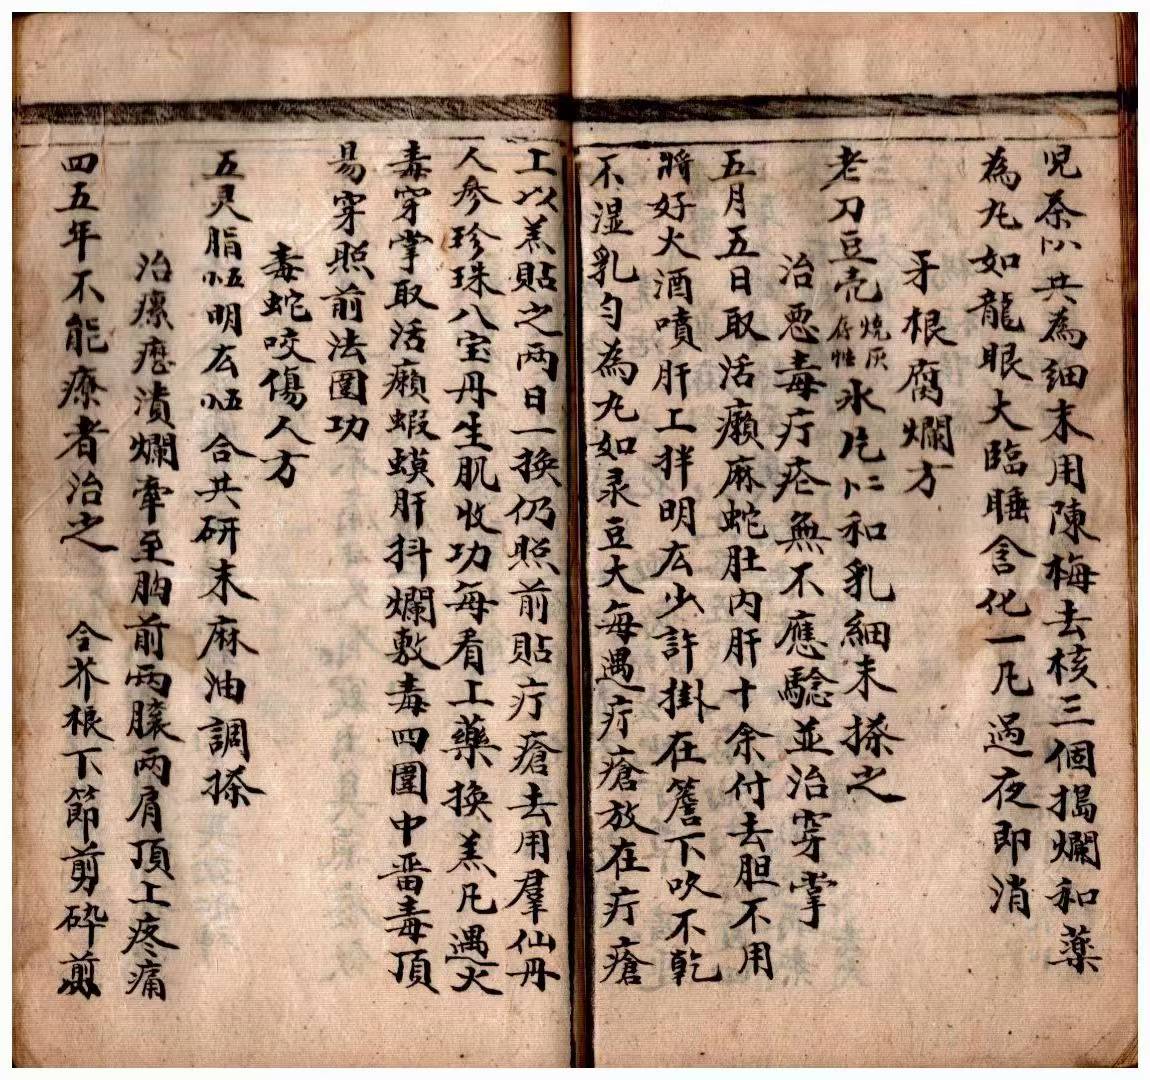 児茶八共為細末用陳梅去核三個搗爛和藥
為九如龍眼大臨睡含化一凡過夜即消
牙根腐爛方
老刀豆壳燒灰存性氷片和乳細末搽之
治惡毒疔疮無不應驗並治穿掌
五月五日取活癩麻蛇肚内肝十余付去胆不用
將好火酒噴肝上拌明広少許掛在簷下吹不乾
不湿乳匀為九如录豆大每遇疔瘡放在疔瘡
上以羔貼之两日一換仍照前貼疔瘡去用羣仙丹
人參珍珠八宝丹生肌收功每看上藥換羔凡遇火
毒穿掌取活癩蝦蟆肝抖爛敷毒四圍中畱毒頂
易穿照前法圍功
毒蛇咬傷人方
五灵脂明広合共研末麻油調搽
治瘰癧潰爛牽至胸前两臁两肩頂上疼痛
四五年不能療者治之 令芥根下節剪碎煎